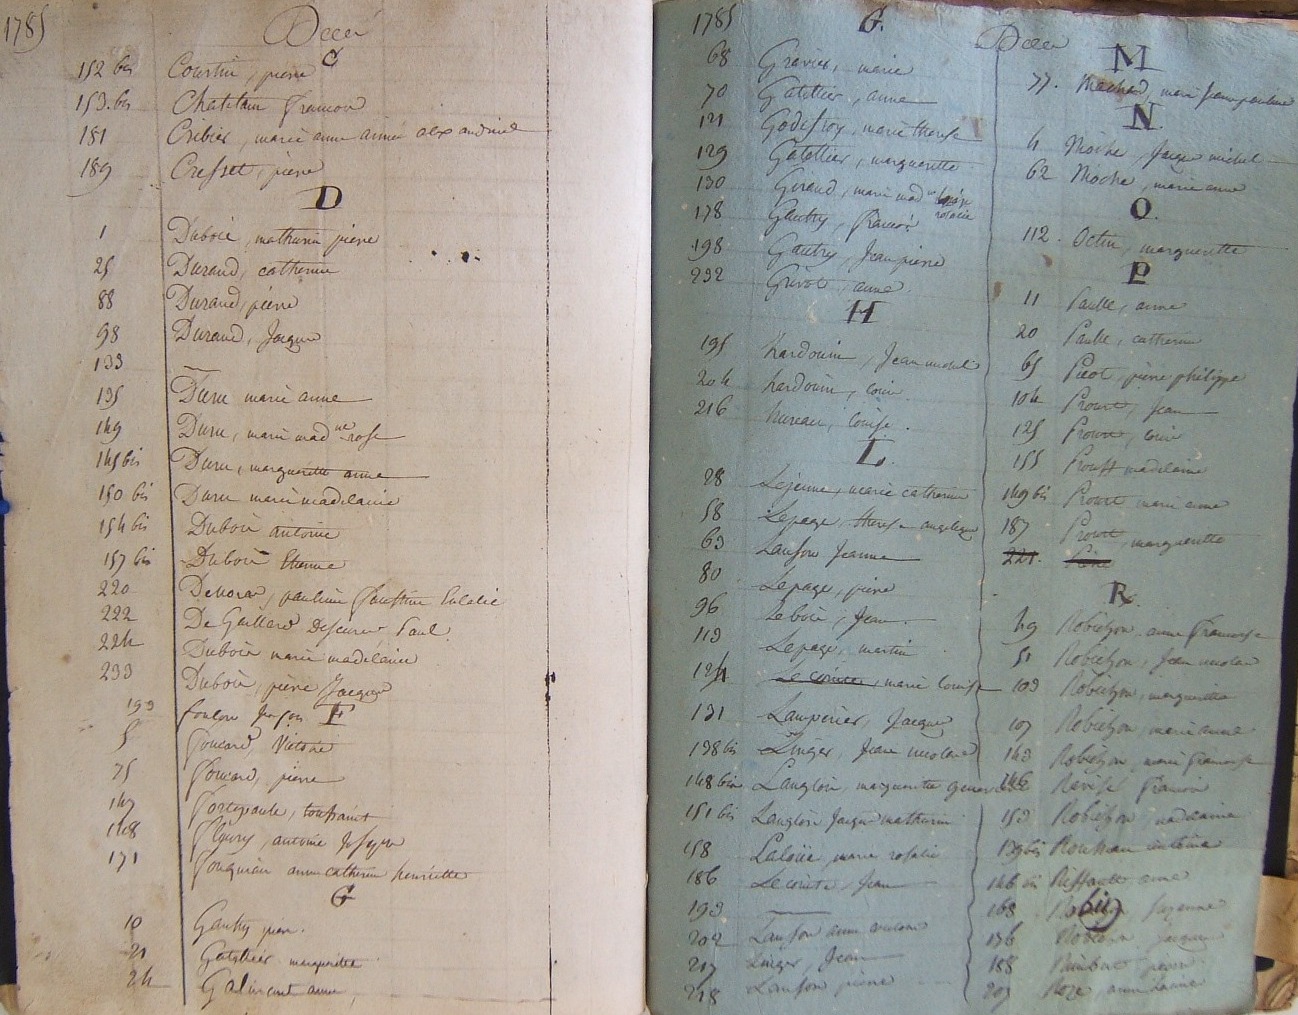 1785
Deces
C
152 bis Courtin, pierre
153.bis Chatelain francois
181 Cribier, marie anne aimée alexandrine
189 Cresset, pierre
D
1 Dubois, mathurin pierre
25 Durand, catherine
88 Durand, pierre
98 Durand, Jacque
133
135 Duru marie anne
149 Duru, marie mad ne rose
145 bis Duru, marguerite anne
150 bis Duru marie madelaine
154 bis Dubois antoine
157 bis Dubois Etienne
220 pauline faustine Eulalie
222 De Gaillard Paul
224 Dubois marie madelaine
233 Dubois, pierre Jacque
193 foulon
F
5 foucard, Victoire
75 foucard, pierre
147 toussaint
148 fleury, antoine Joseph
171 anne catherine henriette
G
10 Gauthry pierre.
21 Gatellier marguerite
24 anne
1785
G.
68 Gravier, marie
70 Gatellier, anne
121 Godefroy, marie therese
129 Gatellier, marguerite
130 Giraud, marie mad ne rosalie
178 Gauthry, francois
198 Gautry, Jean pierre
232 Grivot, anne
H
195 hardouin, Jean
204 hardouin, louis
216 hureau, louise.
L.
28 Lejeune, marie catherine
58 Lepage, therese angelique
63 Lanson Jeanne
80 Lepage, pierre
96 Lebois, Jean
113 Lepage, martin
124 Le comte, marie louise
131 Lamperier, Jacque
138 bis Linger, Jean nicolas
148 bis Langlois, marguerite genevieve
151 bis Langlois Jacque mathurin
158 marie rosalie
186 Lecomte, Jean
193
202 Lanson anne
217 Linger, Jean
218 Lanson pierre
Deces
M
77. marie
N.
4 Moche, Jacque michel
62 Moche, marie anne
O.
112. Octru, marguerite
P
11 Paulle, anne
20 Paulle, catherine
65 Picot, pierre philippe
104 Proust, Jean
125 Proust, louis
155 Proust madelaine
149 bis Proust marie anne
187 Proust, marguerite
221.
R
49 Robichon anne francoise
51 Robichon, Jean nicolas
103 Robichon, marguerite
107 Robichon, marie anne
143 Robichon, marie francoise
146 francois
153 Robichon madelaine
139 bis Rousseau antoine
146 bis Ruffault anne
168 Suzanne
bis
176 Robichon Jacque
188 Rimbert pierre
207 Roze, anne Jeanne